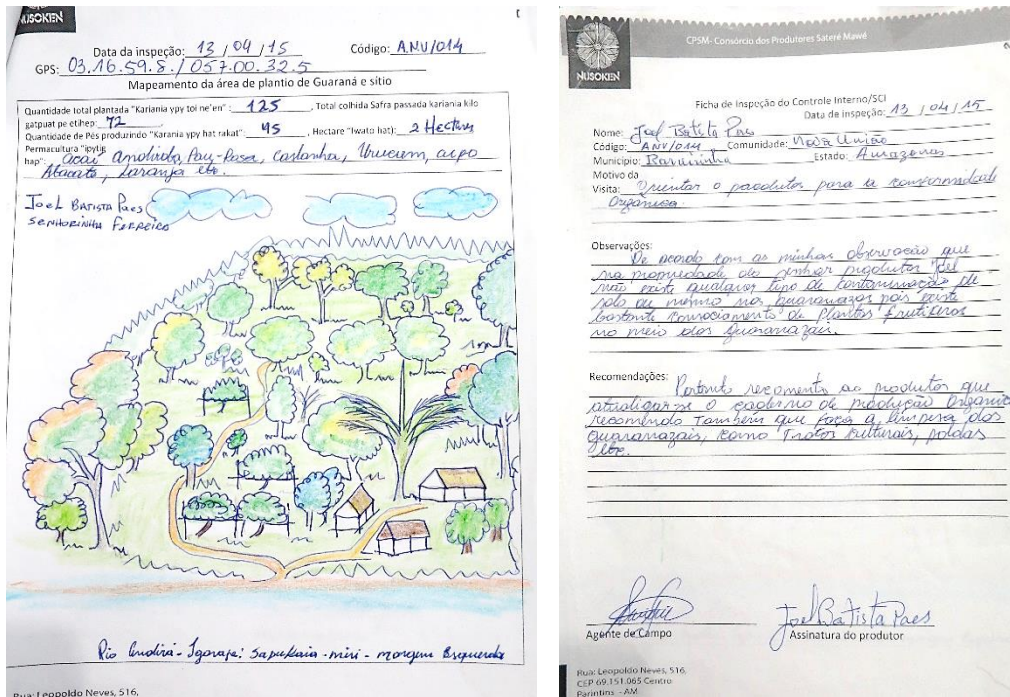 NUSOKEN
Data da inspeção: 13 / 04 / 15 Código: ANV/014
GPS: 03.16.59.8. / 057.00.32.5
Mapeamento da área de plantio de Guaraná e sítio
Quantidade total plantada "Kariania ypy toi ne'en" : 125 , Total colhida Safra passada kariania kilo
gatpuat pe etihep: 72
Quantidade de Pés produzindo "Karania ypy hat rakat": 45 , Hectare "Iwato hat): 2 Hectares
Permacultura "ipytig
hap": Açaí Andiroba, Pau-Rosa, Castanha, Urucum,
Abacate, Laranja etc.
JOEL BATISTA PAES
SENHORINHA FERREIRA
Rio Andirá - Igarapé: Sapukaia-miri - margem Esquerda
Rua: Leopoldo Neves, 516,
NUSOKEN
CPSM- Consórcio dos Produtores Sateré Mawé
Ficha de Inspeção do Controle Interno/SCI
Data da inspeção: 13 / 04 / 15
Nome: Joel Batista Paes
Código: ANV/014 Comunidade: Nova União
Município: Barreirinha Estado: Amazonas
Motivo da
Visita: Orientar o produtos para a conformidade
Orgânica.
Observações:
De acordo com as minhas observação que
na propriedade do senhor produtor Joel
não existe qualquer tipo de contaminação de
solo ou mesmo nos guaranazais pois existe
bastante consorciamento de plantas frutíferas
no meio dos Guaranazais.
Recomendações:
Portanto recomento ao produtor que
o caderno de produção Orgânic
recomendo também que faça a limpeza dos
guaranazais, como Tratos Culturais, podas
etc.
Agente de Campo
Joel Batista Paes
Assinatura do produtor
Rua: Leopoldo Neves, 516,
CEP 69.151.065 Centro
Parintins - AM